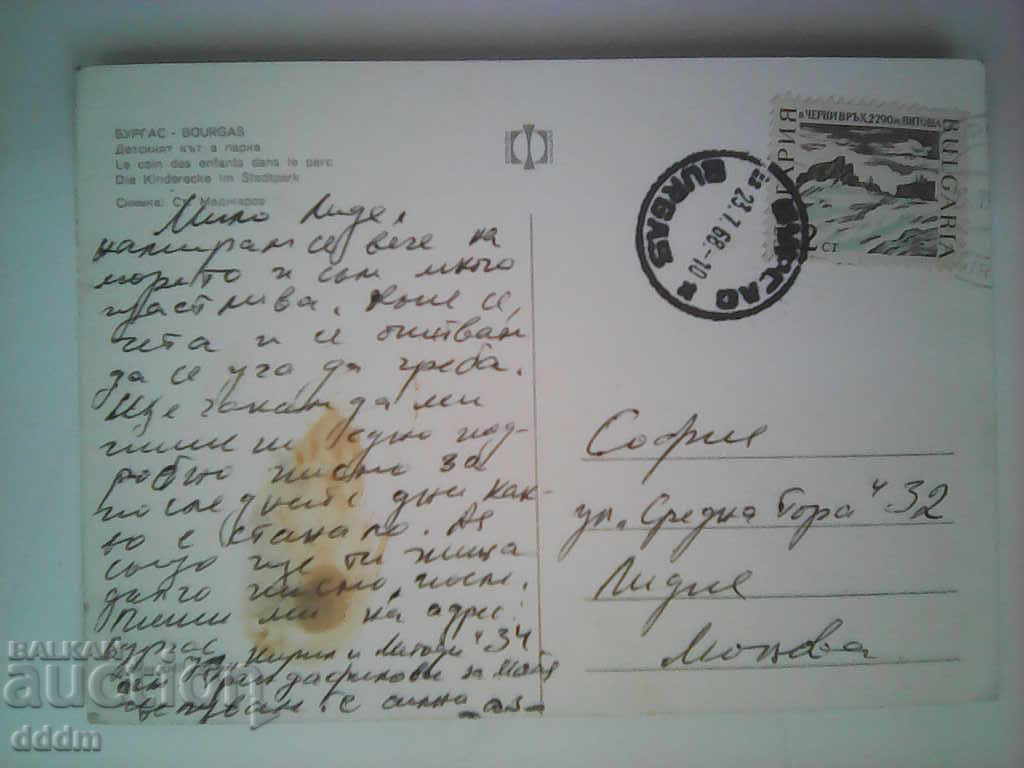 БУРГАС - BOURGAS
Детският кът в парка
Le coin des enfants dans le parc
Die Kinderecke im Stadtpark
Снимка: Ст. Маджаров
Мило Лиде,
намирам се вече на
морето и съм много
щастлива. Къпе се,
чета и се опитвам
да се уча да греба.
Ще чакам да ми
пишеш едно под-
робно писмо за
последните дни как-
во е станало. Аз
също ще ти пиша
дълго писмо после.
Пиши ми на адрес:
Бургас
ул. "Кирил и Методи" 34
за Мая
Целувам те силно аз
в. ЧЕРНИ ВРЪХ, 2290 м. ВИТОША
BULGARIA
2 СТ
БУРГАС
23.7.68.-10
BURGAS
София
ул. "Средна Гора" 32
Лидия
Монова
BALKAN
auction
dddm